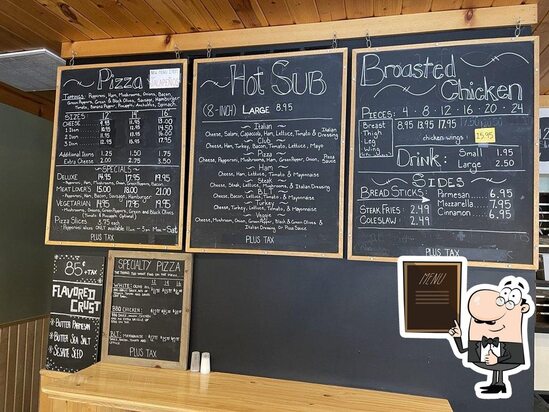 Pizza
Toppings: Pepperoni, Ham, Mushrooms, Onions, Bacon,
Green Peppers, Green & Black Olives, Sausage, Hamburger
Tomato, Banana Pepper, Pineapple, Anchovies, Spinach
SIZES 12 14 16
CHEESE
1 Item
2 Item
3 Item
Additional Items 1.25 1.50 1.75
Extra Cheese 2.00 2.75 3.50
SPECIALS
DELUXE 14.95 17.95 19.95
- Pepperoni, Ham, Mushrooms, Onion, Green Pepper
MEAT LOVERS 15.00 18.00 21.00
- Pepperoni, Ham, Bacon, Sausage, Hamburger
VEGETARIAN 14.95 17.95 19.95
- Mushrooms, Onions, Green Peppers, Green and Black Olives
Tomato & Pineapple (Optional)
Pizza Slices 3.75 each
- Pepperoni slices ONLY available 11am - 3pm Mon - Sat
PLUS TAX
Hot Sub
(8-INCH) LARGE 8.95
- Italian -
Cheese, Salami, Capocolla, Ham, Lettuce, Tomato & Dressing
- Club -
Cheese, Ham, Turkey, Bacon, Tomato, Lettuce, Mayo
- Pizza -
Cheese, Pepperoni, Mushrooms, Ham, Green Pepper, Onion, Pizza Sauce
- Ham -
Cheese, Ham, Lettuce, Tomato & Mayonnaise
- Steak -
Cheese, Steak, Lettuce, Mushrooms, & Italian Dressing
- B.L.T. -
Cheese, Bacon, Lettuce, Tomato & Mayonnaise
- Turkey -
Cheese, Turkey, Lettuce, Tomato & Mayonnaise
- Veggie -
Cheese, Mushroom, Onion, Green Pepper, Black & Green Olives &
Italian Dressing or Pizza Sauce
PLUS TAX
Broasted
Chicken
PIECES: 4 · 8 · 12 · 16 · 20 · 24
Breast 8.95 13.95 17.95
Thigh
Leg
Wing
chicken wings 15.95
DRINK: Small 1.95
Large 2.50
SIDES
BREAD STICKS Parmesan 6.95
Mozzarella 7.95
Cinnamon 6.95
STEAK FRIES 2.49
COLESLAW 2.49
PLUS TAX
85¢ +TAX
FLAVORED
CRUST
* BUTTER PARMESAN
* BUTTER SEA SALT
* SESAME SEED
SPECIALTY PIZZA
BBQ CHICKEN:
BLT: MAYONNAISE
PLUS TAX
MENU